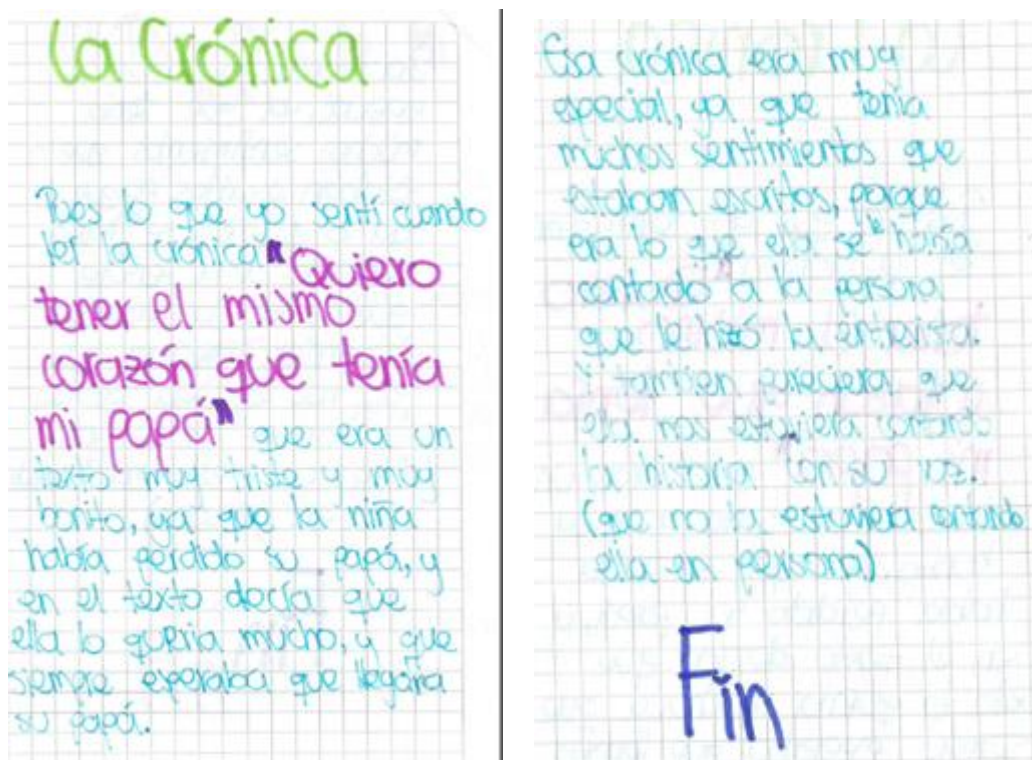 La Crónica
Pues lo que yo sentí cuando
leí la crónica "Quiero
tener el mismo
corazón que tenía
mi papá" que era un
texto muy triste y muy
bonito, ya que la niña
había perdido su papá, y
en el texto decía que
ella lo quería mucho, y que
siempre esperaba que llegara
su papá.
Esa crónica era muy
especial, ya que tenía
muchos sentimientos que
estaban escritos, porque
era lo que ella se le había
contado a la persona
que le hizó la entrevista.
tambien pareciera que
ella nos estuviera contando
la historia con su voz.
(que no la estuviera contando
ella en persona)
Fin